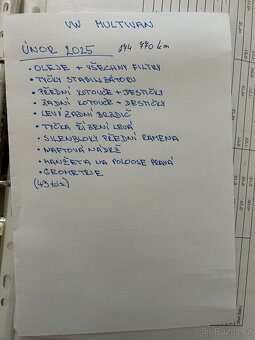 VW MULTIVAN
ÚNOR 2025 194 470 km
• OLEJE + VŠECHNY FILTRY
• TYČKY STABILIZÁTORU
• PŘEDNÍ KOTOUČE + DESTIČKY
• ZADNÍ KOTOUČE + DESTIČKY
• LEVÝ ZADNÍ BRZDIČ
• TYČKA ŘÍZENÍ LEVÁ
• SILENBLOKY PŘEDNÍ RAMENA
• NAFTOVÁ NÁDRŽ
• MANŽETA NA POLOOSE PRAVÁ
• GEOMETRIE
(49 tis)